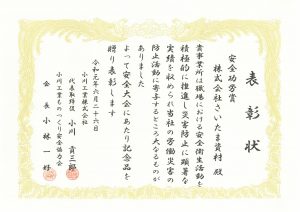 表彰状
安全功労賞
株式会社さいたま資材 殿
貴事業所は職場における安全衛生活動を
積極的に推進し災害防止に顕著な
実績を収められ当社の労働災害の
防止活動に寄与するところ大なるものが
ありました
よって安全大会にあたり記念品を
贈り表彰します
令和元年六月二十六日
小川工業株式会社
代表取締役 小川 貢三郎
小川工業ものつくり安全協力会
会長 小林 一好